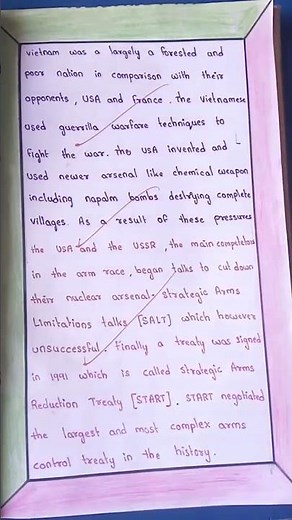 vietnam was a largely a forested and
poor nation in comparison with their
opponents, USA and France. The vietnamese
used guerrilla warfare techniques to
fight the war. The USA invented and
used newer arsenal like chemical weapon
including napalm bombs destrying complete
villages. As a result of these pressures
the USA and the USSR, the main competitors
in the arm race, began talks to cut down
their nuclear arsenal. Strategic Arms
Limitations talks [SALT] which however
unsuccessful. Finally a treaty was signed
in 1991 which is called Strategic Arms
Reduction Treaty [START]. START negotiated
the largest and most complex arms
control treaty in the history.